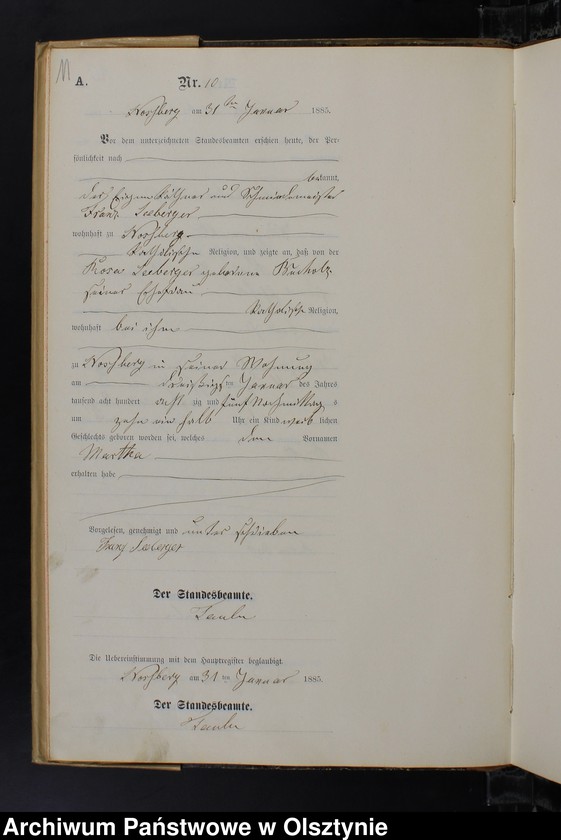 11
A.
Nr. 10
am 31 ten Januar 1885.
Vor dem unterzeichneten Standesbeamten erschien heute, der Per-
sönlichkeit nach
bekannt,
der Eigenkäthner und Schmiedemeister
Franz Seeberger
wohnhaft zu
katholischer Religion, und zeigte an, daß von der
Rosa Seeberger geborene Buchholz
seiner Ehefrau
katholischer Religion,
wohnhaft bei ihm
zu in seiner Wohnung
am dreißigsten Januar des Jahres
tausend acht hundert acht zig und fünf Nachmittags
um zehn ein halb Uhr ein Kind weib lichen
Geschlechts geboren worden sei, welches den Vornamen
Martha
erhalten habe
Vorgelesen, genehmigt und unterschrieben
Franz Seeberger
Der Standesbeamte.
Die Uebereinstimmung mit dem Hauptregister beglaubigt.
am 31 ten Januar 1885.
Der Standesbeamte.
Archiwum Państwowe w Olsztynie